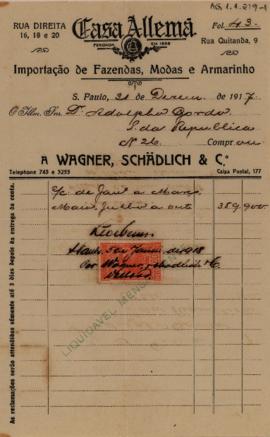 AG.1.1.219-1
RUA DIREITA
16, 18 e 20
Casa Allemã.
FUNDADA EM 1883
Fol. 43
Rua Quitanda, 9
Importação de Fazendas, Modas e Armarinho
S. Paulo, 31 de Dezem. de 1917.
O Illmo. Snr. Dr. Adolpho Gordo
P. da Republica
No 26 Comprou
A WAGNER, SCHÄDLICH & Co.
Telephone 743 e 3253
Caixa Postal, 177
c/ de Jan. a Março
Maio, Julho a Out. 389.900
Recebemos
S. Paulo, 5 de Janeiro de 1918
Por Wagner, Schädlich & C.
LIQUIDAVEL MENSALMENTE
As reclamações serão attendidas sómente até 3 dias depois da entrega da conta.